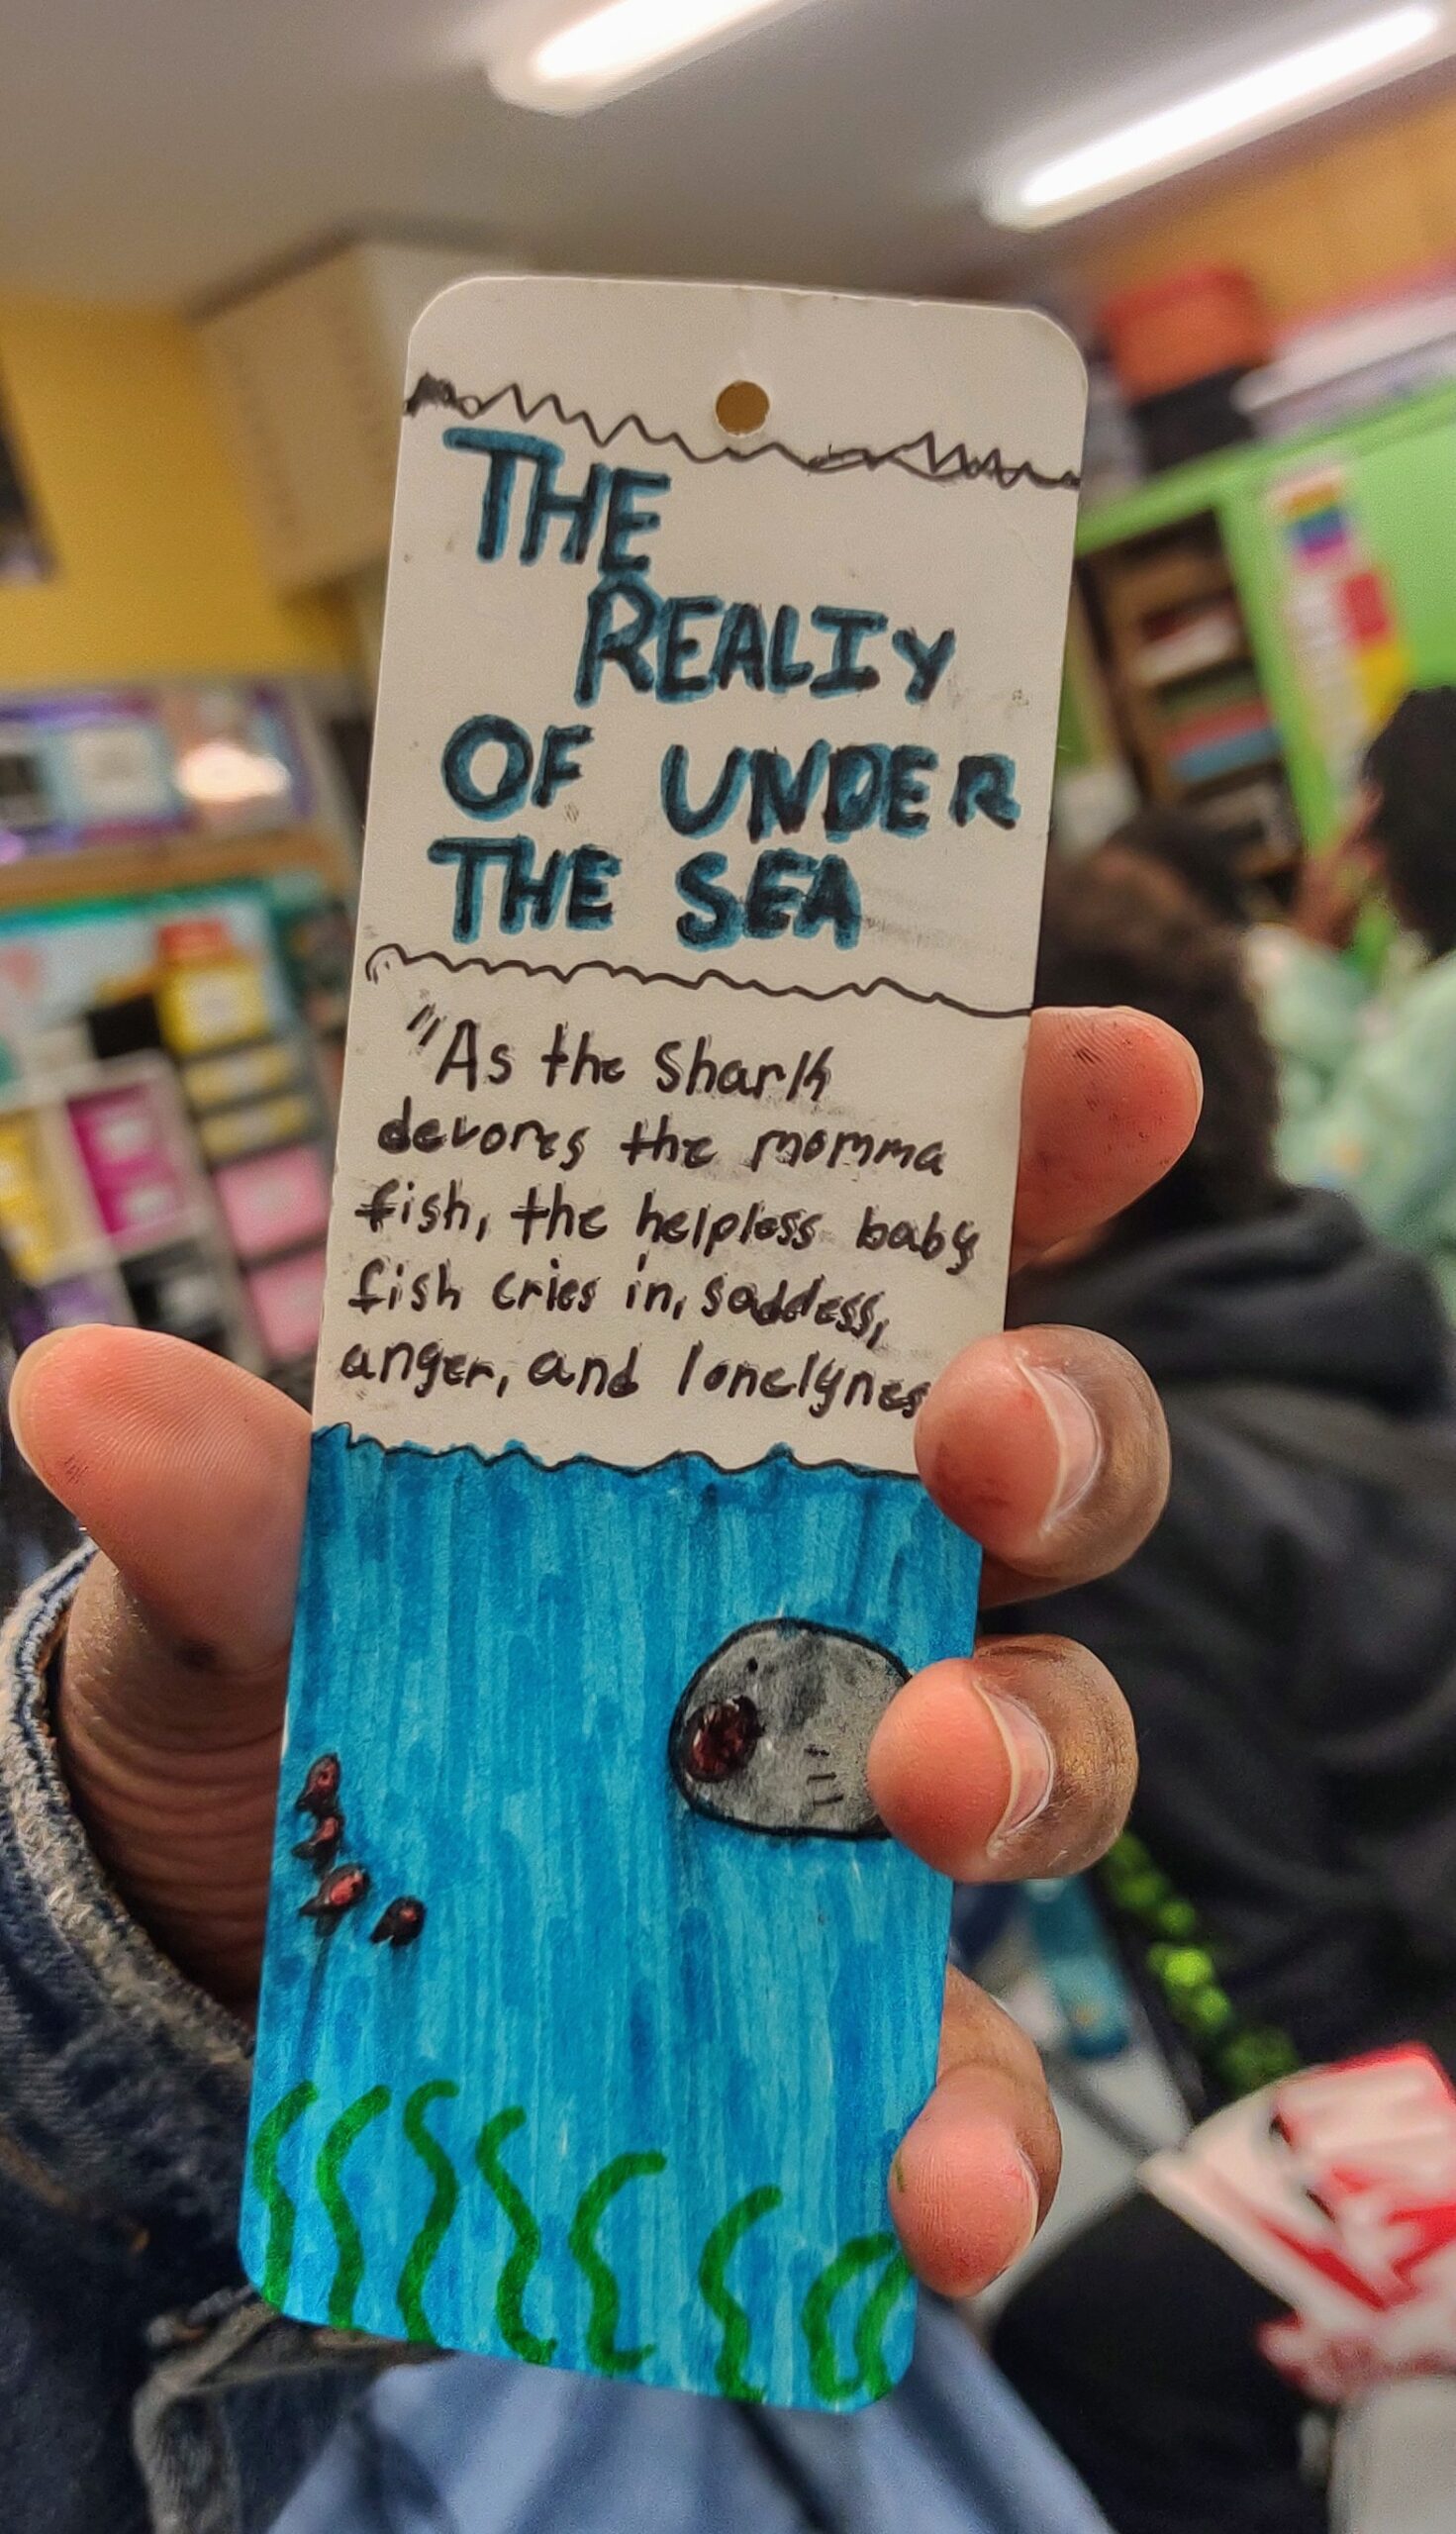 THE
REALIY
OF UNDER
THE SEA
"As the Shark
devores the momma
fish, the helpless baby
fish cries in, saddess,
anger, and lonelynes